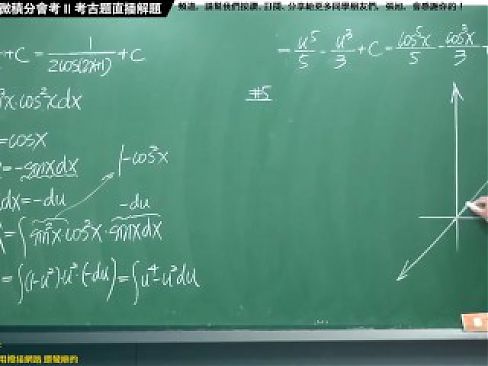 微積分會考 II 考古題直播解題
頻道，請幫我們按讚、訂閱、分享給更多同學朋友們，張旭，會感謝你的！
+C = 1/(2cos(2x+1)) + C
x·cos²x dx
=cosx
=-sinxdx
dx=-du
1-cos²x
-du
=∫sin²x cos²x·sinxdx
=∫(1-u²)u²·(-du)=∫u⁴-u²du
#5
u⁵/5 - u³/3 +C = cos⁵x/5 - cos³x/3 +